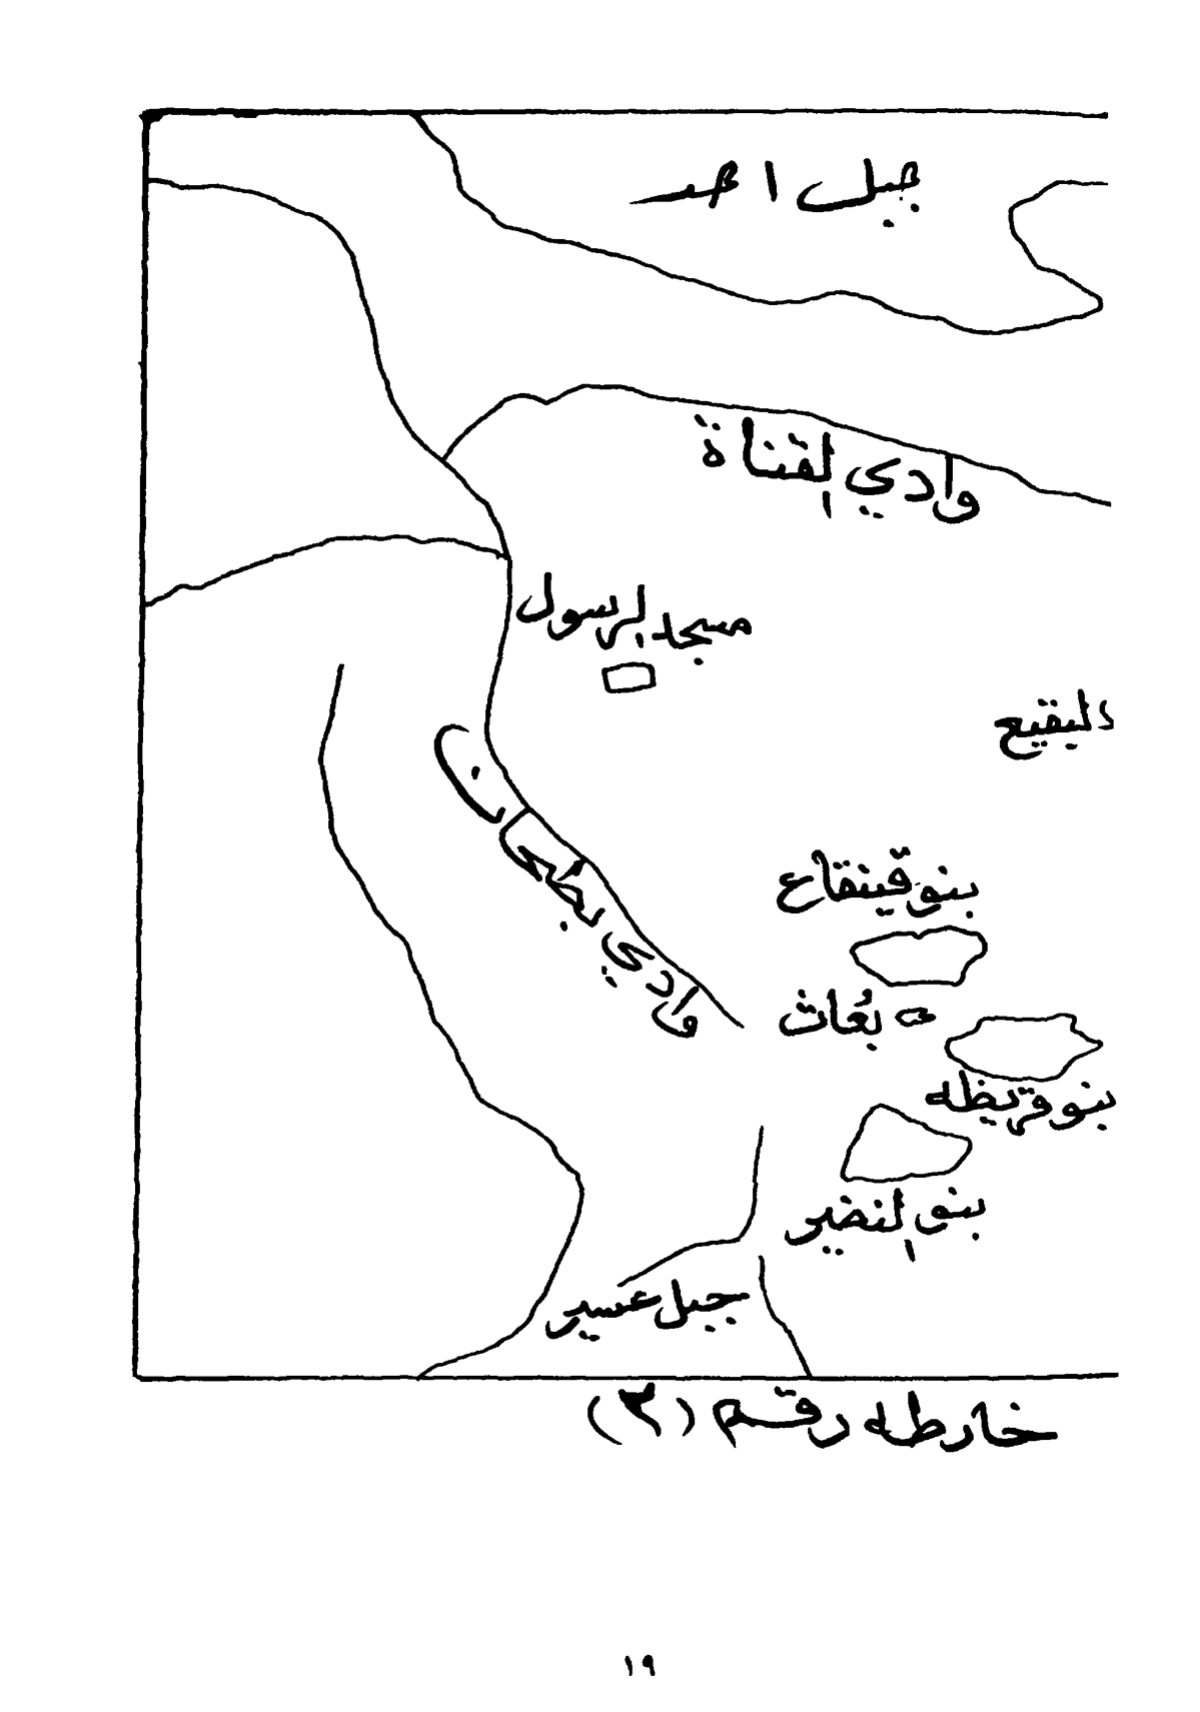 جبل احد
وادي القناة
مسجد الرسول
البقيع
وادي بطحان
بنو قينقاع
بُعاث
بنو قريظه
بنو النضير
جبل عسير
خارطه رقم (٣)
١٩